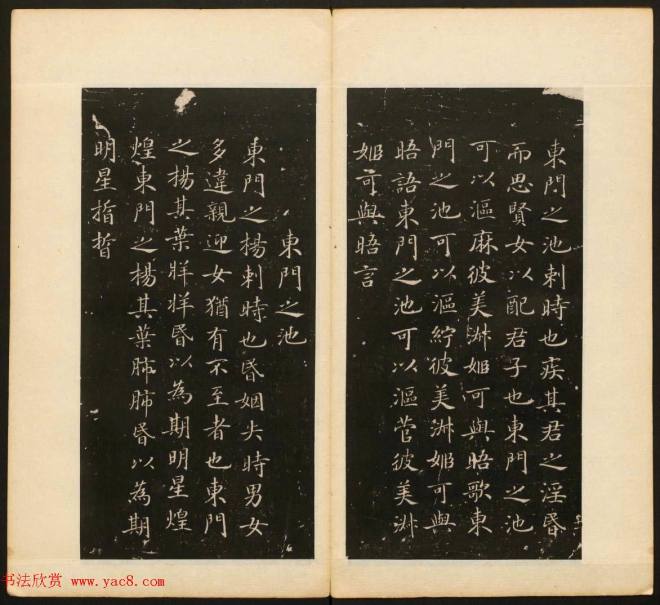 東門之池刺時也疾其君之淫昏
而思賢女以配君子也東門之池
可以漚麻彼美淑姬可與晤歌東
門之池可以漚紵彼美淑姬可與
晤語東門之池可以漚菅彼美淑
姬可與晤言
東門之池
東門之楊刺時也昏姻失時男女
多違親迎女猶有不至者也東門
之楊其葉牂牂昏以為期明星煌
煌東門之楊其葉肺肺昏以為期
明星晢晢
书法欣赏 www.yac8.com